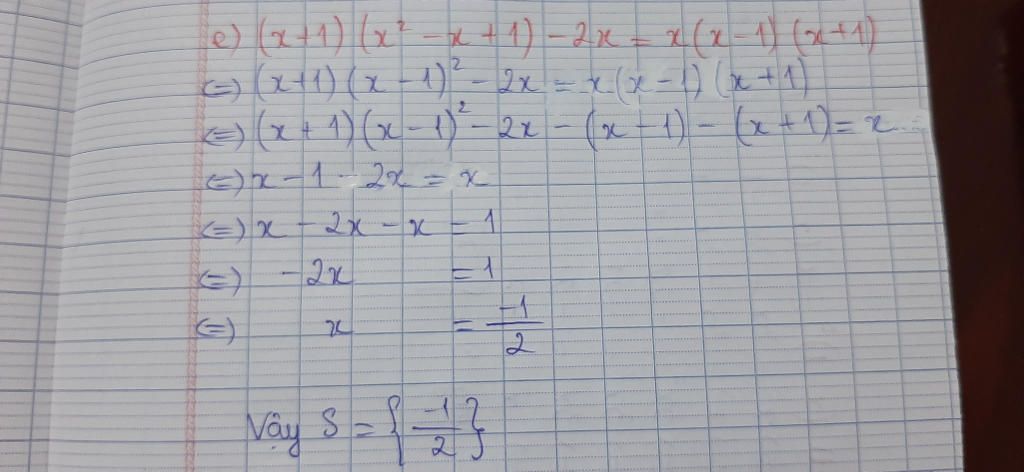 e) (x+1) (x² - x + 1) - 2x = x(x-1) (x+1)
(=) (x+1) (x - 1)² - 2x = x(x-1) (x+1)
(=) (x+1) (x-1)² - 2x - (x-1) - (x+1) = x
(=) x - 1 - 2x = x
(=) x - 2x - x = 1
(=) -2x = 1
(=) x = -1/2
Vậy S = {-1/2}